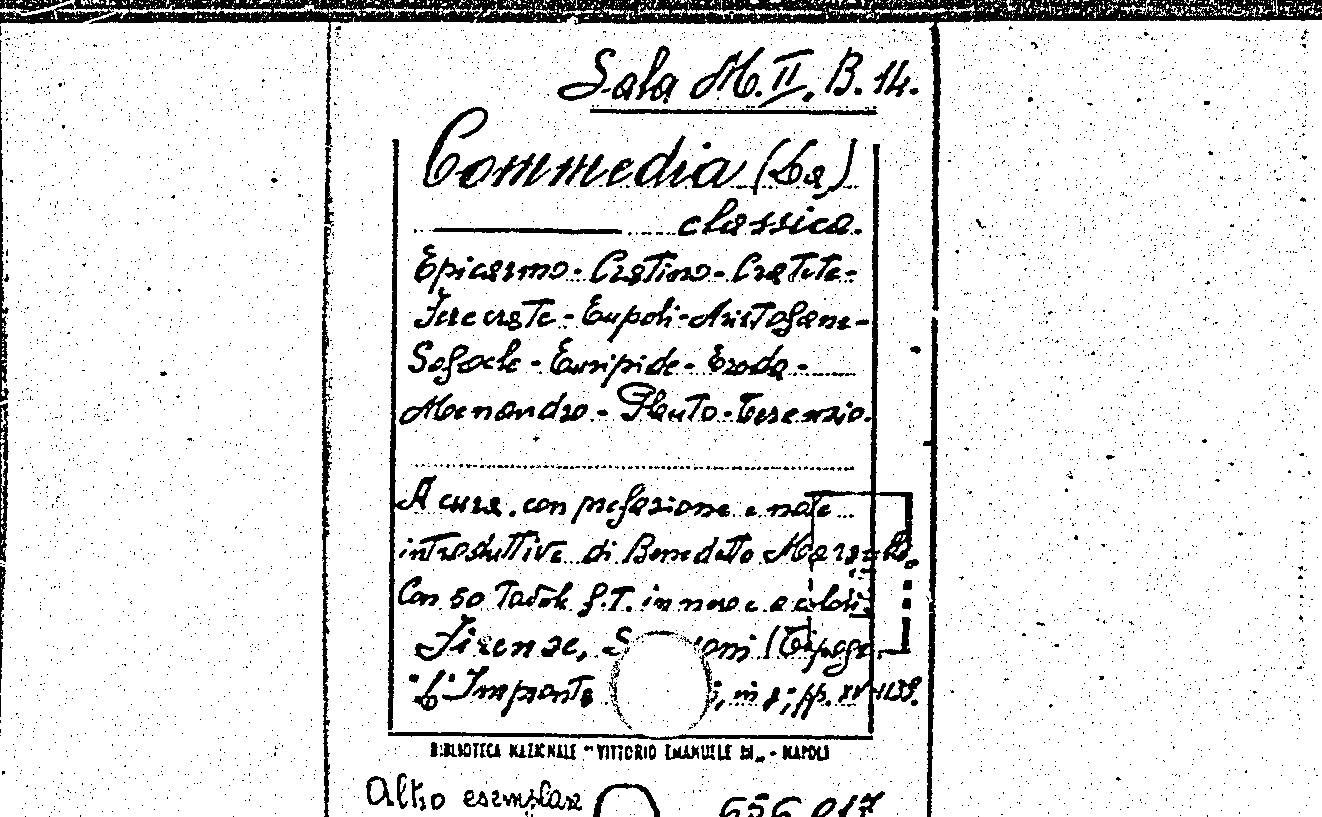 Sala M. II. B. 14.
Commedia (La)
classica.
Epicarmo - Cratino - Cratete -
Ferecrate - Eupoli - Aristofane -
Sofocle - Euripide - Eroda -
Menandro - Plauto - Terenzio.
A cura, con prefazione e note
introduttive di Benedetto Marzullo.
Con 50 Tavole f.T. in nero e a colori
Firenze, (Tipogr.
"L'Impronta in 8°, pp. XV-1139.
BIBLIOTECA NAZIONALE "VITTORIO EMANUELE III" - NAPOLI
Altro esemplare 656.017